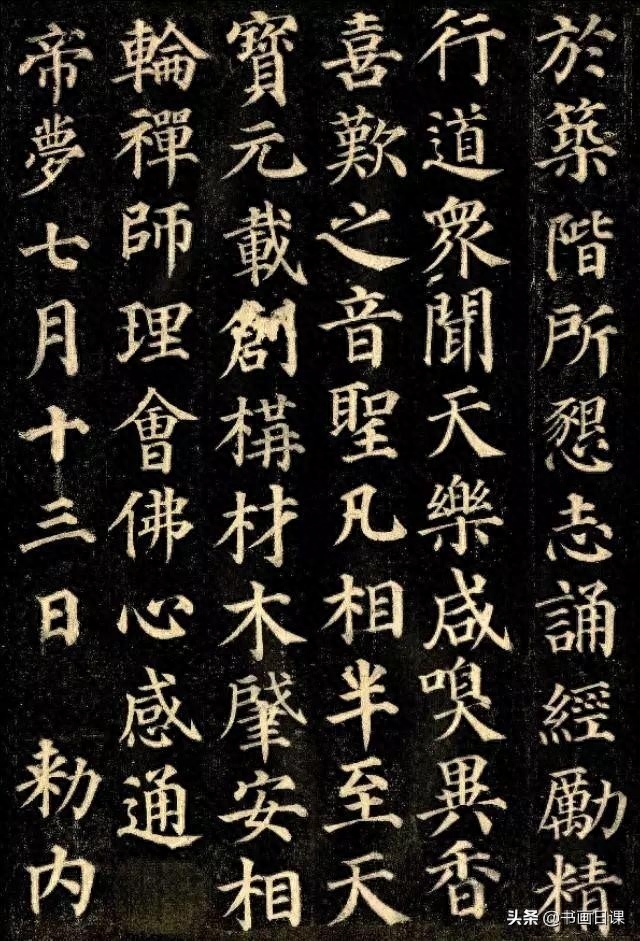 於築階所懇志誦經勵精
行道衆聞天樂咸嗅異香
喜歎之音聖凡相半至天
寶元載創構材木肇安相
輪禪師理會佛心感通
帝夢七月十三日 勅内
头条 @书画日课